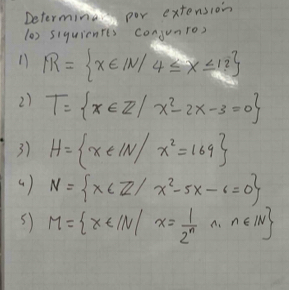 Determinar por extensión
los siguientes conjuntos
1) R = {x ∈ IN / 4 ≤ x ≤ 12}
2) T = {x ∈ ℤ / x² - 2x - 3 = 0}
3) H = {x ∈ IN / x² = 169}
4) N = {x ∈ ℤ / x² - 5x - 6 = 0}
5) M = {x ∈ IN / x = 1/2ⁿ ∧ n ∈ IN}